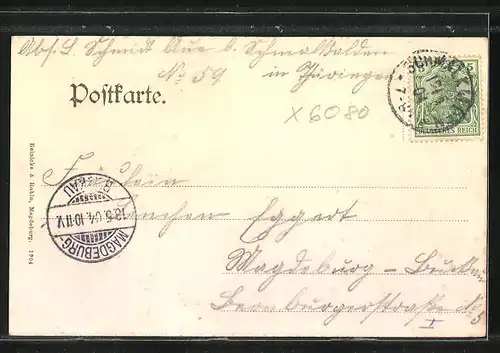 Abs. L. Schmidt Aue b. Schmalkalden
No 59 in Thüringen
Postkarte.
X 6080
5
SCHMALKALDEN
DEUTSCHES REICH
Fräulein
Eggert
Magdeburg - Buckau
Bernburgerstraße No 5
I
MAGDEBURG-
BUCKAU
13.5.04.10-11V.
Reinicke & Rubin, Magdeburg. 1904